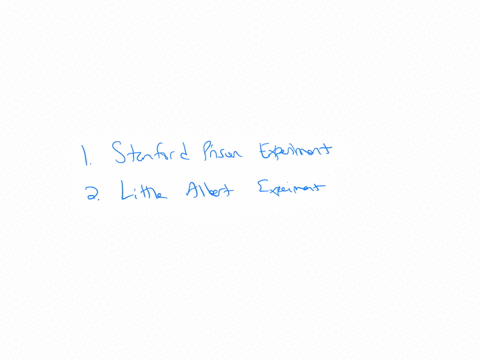 1. Stanford Prison Experiment
2. Little Albert Expeiment